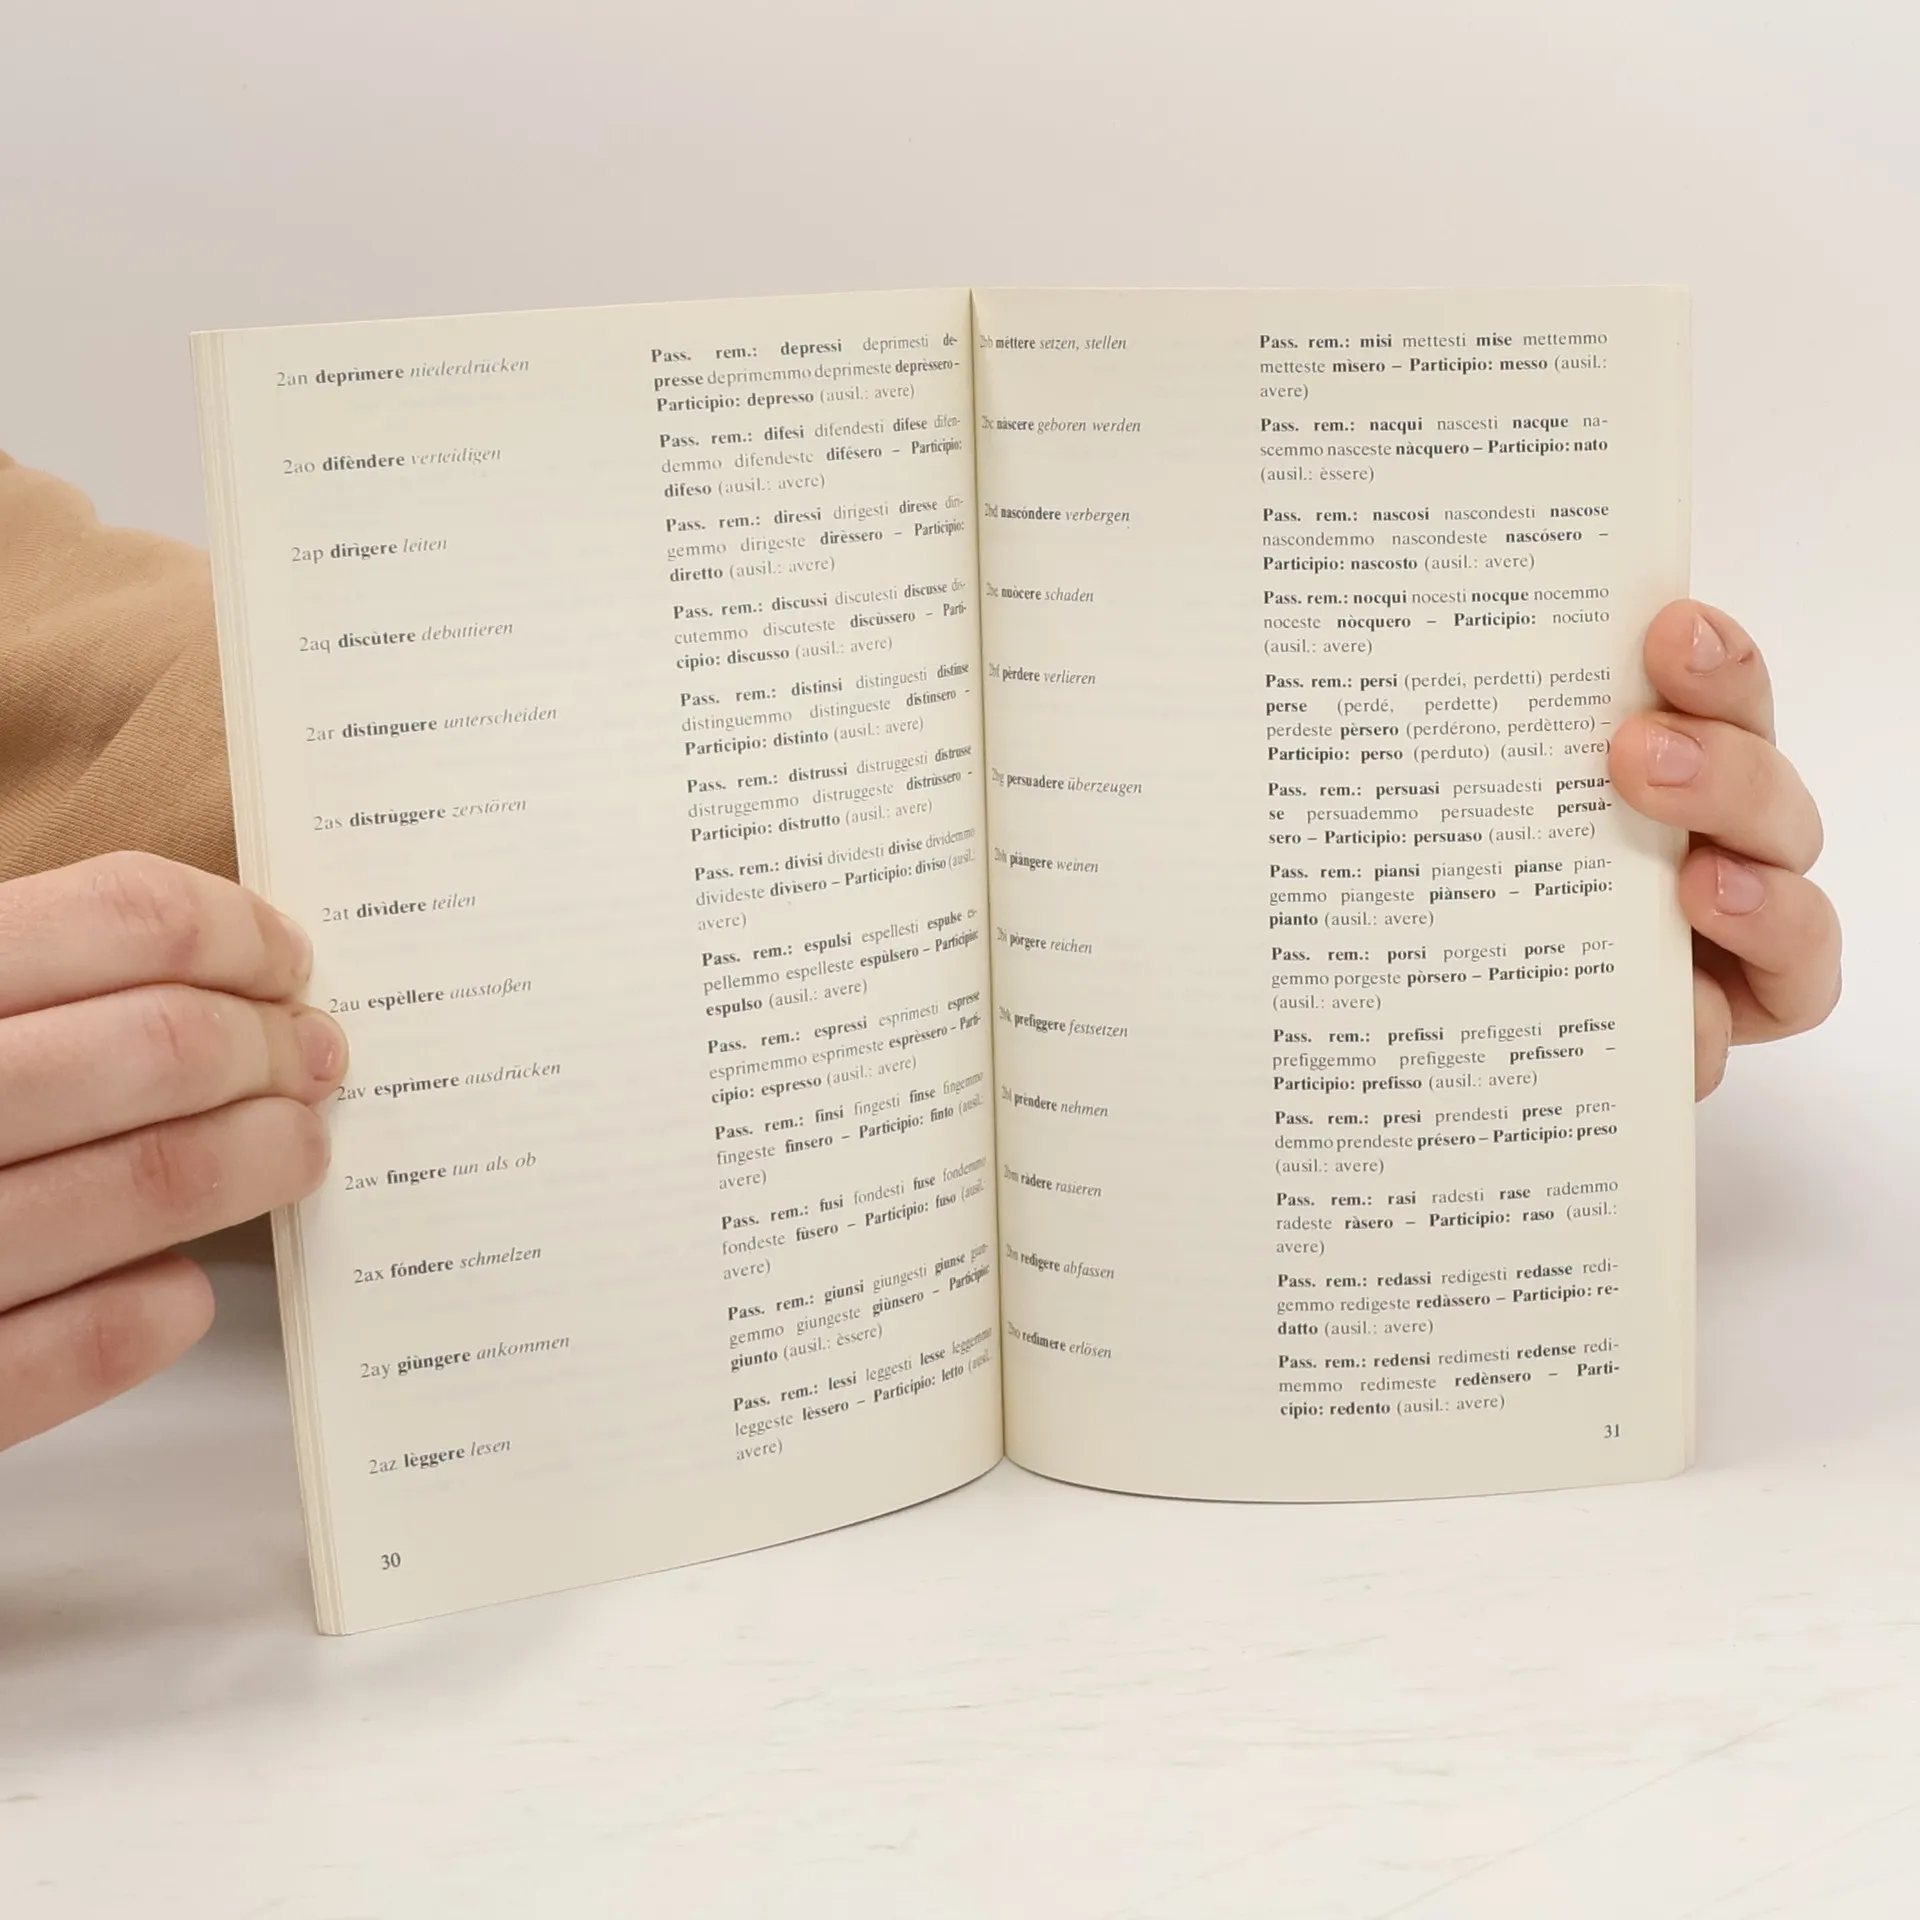 2an deprìmere niederdrücken
Pass. rem.: depressi deprimesti de-
presse deprimemmo deprimeste deprèssero –
Participio: depresso (ausil.: avere)
2ao difèndere verteidigen
Pass. rem.: difesi difendesti difese difen-
demmo difendeste difésero – Participio:
difeso (ausil.: avere)
2ap dirìgere leiten
Pass. rem.: diressi dirigesti diresse diri-
gemmo dirigeste dirèssero – Participio:
diretto (ausil.: avere)
2aq discùtere debattieren
Pass. rem.: discussi discutesti discusse dis-
cutemmo discuteste discùssero – Parti-
cipio: discusso (ausil.: avere)
2ar distìnguere unterscheiden
Pass. rem.: distinsi distinguesti distinse
distinguemmo distingueste distìnsero –
Participio: distinto (ausil.: avere)
2as distrùggere zerstören
Pass. rem.: distrussi distruggesti distrusse
distruggemmo distruggeste distrùssero –
Participio: distrutto (ausil.: avere)
2at divìdere teilen
Pass. rem.: divisi dividesti divise dividemmo
divideste divìsero – Participio: diviso (ausil.:
avere)
2au espèllere ausstoßen
Pass. rem.: espulsi espellesti espulse es-
pellemmo espelleste espùlsero – Participio:
espulso (ausil.: avere)
2av esprìmere ausdrücken
Pass. rem.: espressi esprimesti espresse
esprimemmo esprimeste esprèssero – Parti-
cipio: espresso (ausil.: avere)
2aw fìngere tun als ob
Pass. rem.: finsi fingesti finse fingemmo
fingeste fìnsero – Participio: finto (ausil.:
avere)
2ax fóndere schmelzen
Pass. rem.: fusi fondesti fuse fondemmo
fondeste fùsero – Participio: fuso (ausil.:
avere)
2ay giùngere ankommen
Pass. rem.: giunsi giungesti giunse giun-
gemmo giungeste giùnsero – Participio:
giunto (ausil.: èssere)
2az lèggere lesen
Pass. rem.: lessi leggesti lesse leggemmo
leggeste lèssero – Participio: letto (ausil.:
avere)
30
2bb méttere setzen, stellen
Pass. rem.: misi mettesti mise mettemmo
metteste mìsero – Participio: messo (ausil.:
avere)
2bc nàscere geboren werden
Pass. rem.: nacqui nascesti nacque na-
scemmo nasceste nàcquero – Participio: nato
(ausil.: èssere)
2bd nascóndere verbergen
Pass. rem.: nascosi nascondesti nascose
nascondemmo nascondeste nascósero –
Participio: nascosto (ausil.: avere)
2be nuòcere schaden
Pass. rem.: nocqui nocesti nocque nocemmo
noceste nòcquero – Participio: nociuto
(ausil.: avere)
2bf pèrdere verlieren
Pass. rem.: persi (perdei, perdetti) perdesti
perse (perdé, perdette) perdemmo
perdeste pèrsero (perdérono, perdèttero) –
Participio: perso (perduto) (ausil.: avere)
2bg persuadere überzeugen
Pass. rem.: persuasi persuadesti persua-
se persuademmo persuadeste persuà-
sero – Participio: persuaso (ausil.: avere)
2bh piàngere weinen
Pass. rem.: piansi piangesti pianse pian-
gemmo piangeste piànsero – Participio:
pianto (ausil.: avere)
2bi pòrgere reichen
Pass. rem.: porsi porgesti porse por-
gemmo porgeste pòrsero – Participio: porto
(ausil.: avere)
2bk prefìggere festsetzen
Pass. rem.: prefissi prefiggesti prefisse
prefiggemmo prefiggeste prefìssero –
Participio: prefisso (ausil.: avere)
2bl prèndere nehmen
Pass. rem.: presi prendesti prese pren-
demmo prendeste présero – Participio: preso
(ausil.: avere)
2bm ràdere rasieren
Pass. rem.: rasi radesti rase rademmo
radeste ràsero – Participio: raso (ausil.:
avere)
2bn redìgere abfassen
Pass. rem.: redassi redigesti redasse redi-
gemmo redigeste redàssero – Participio: re-
datto (ausil.: avere)
2bo redìmere erlösen
Pass. rem.: redensi redimesti redense redi-
memmo redimeste redènsero – Parti-
cipio: redento (ausil.: avere)
31